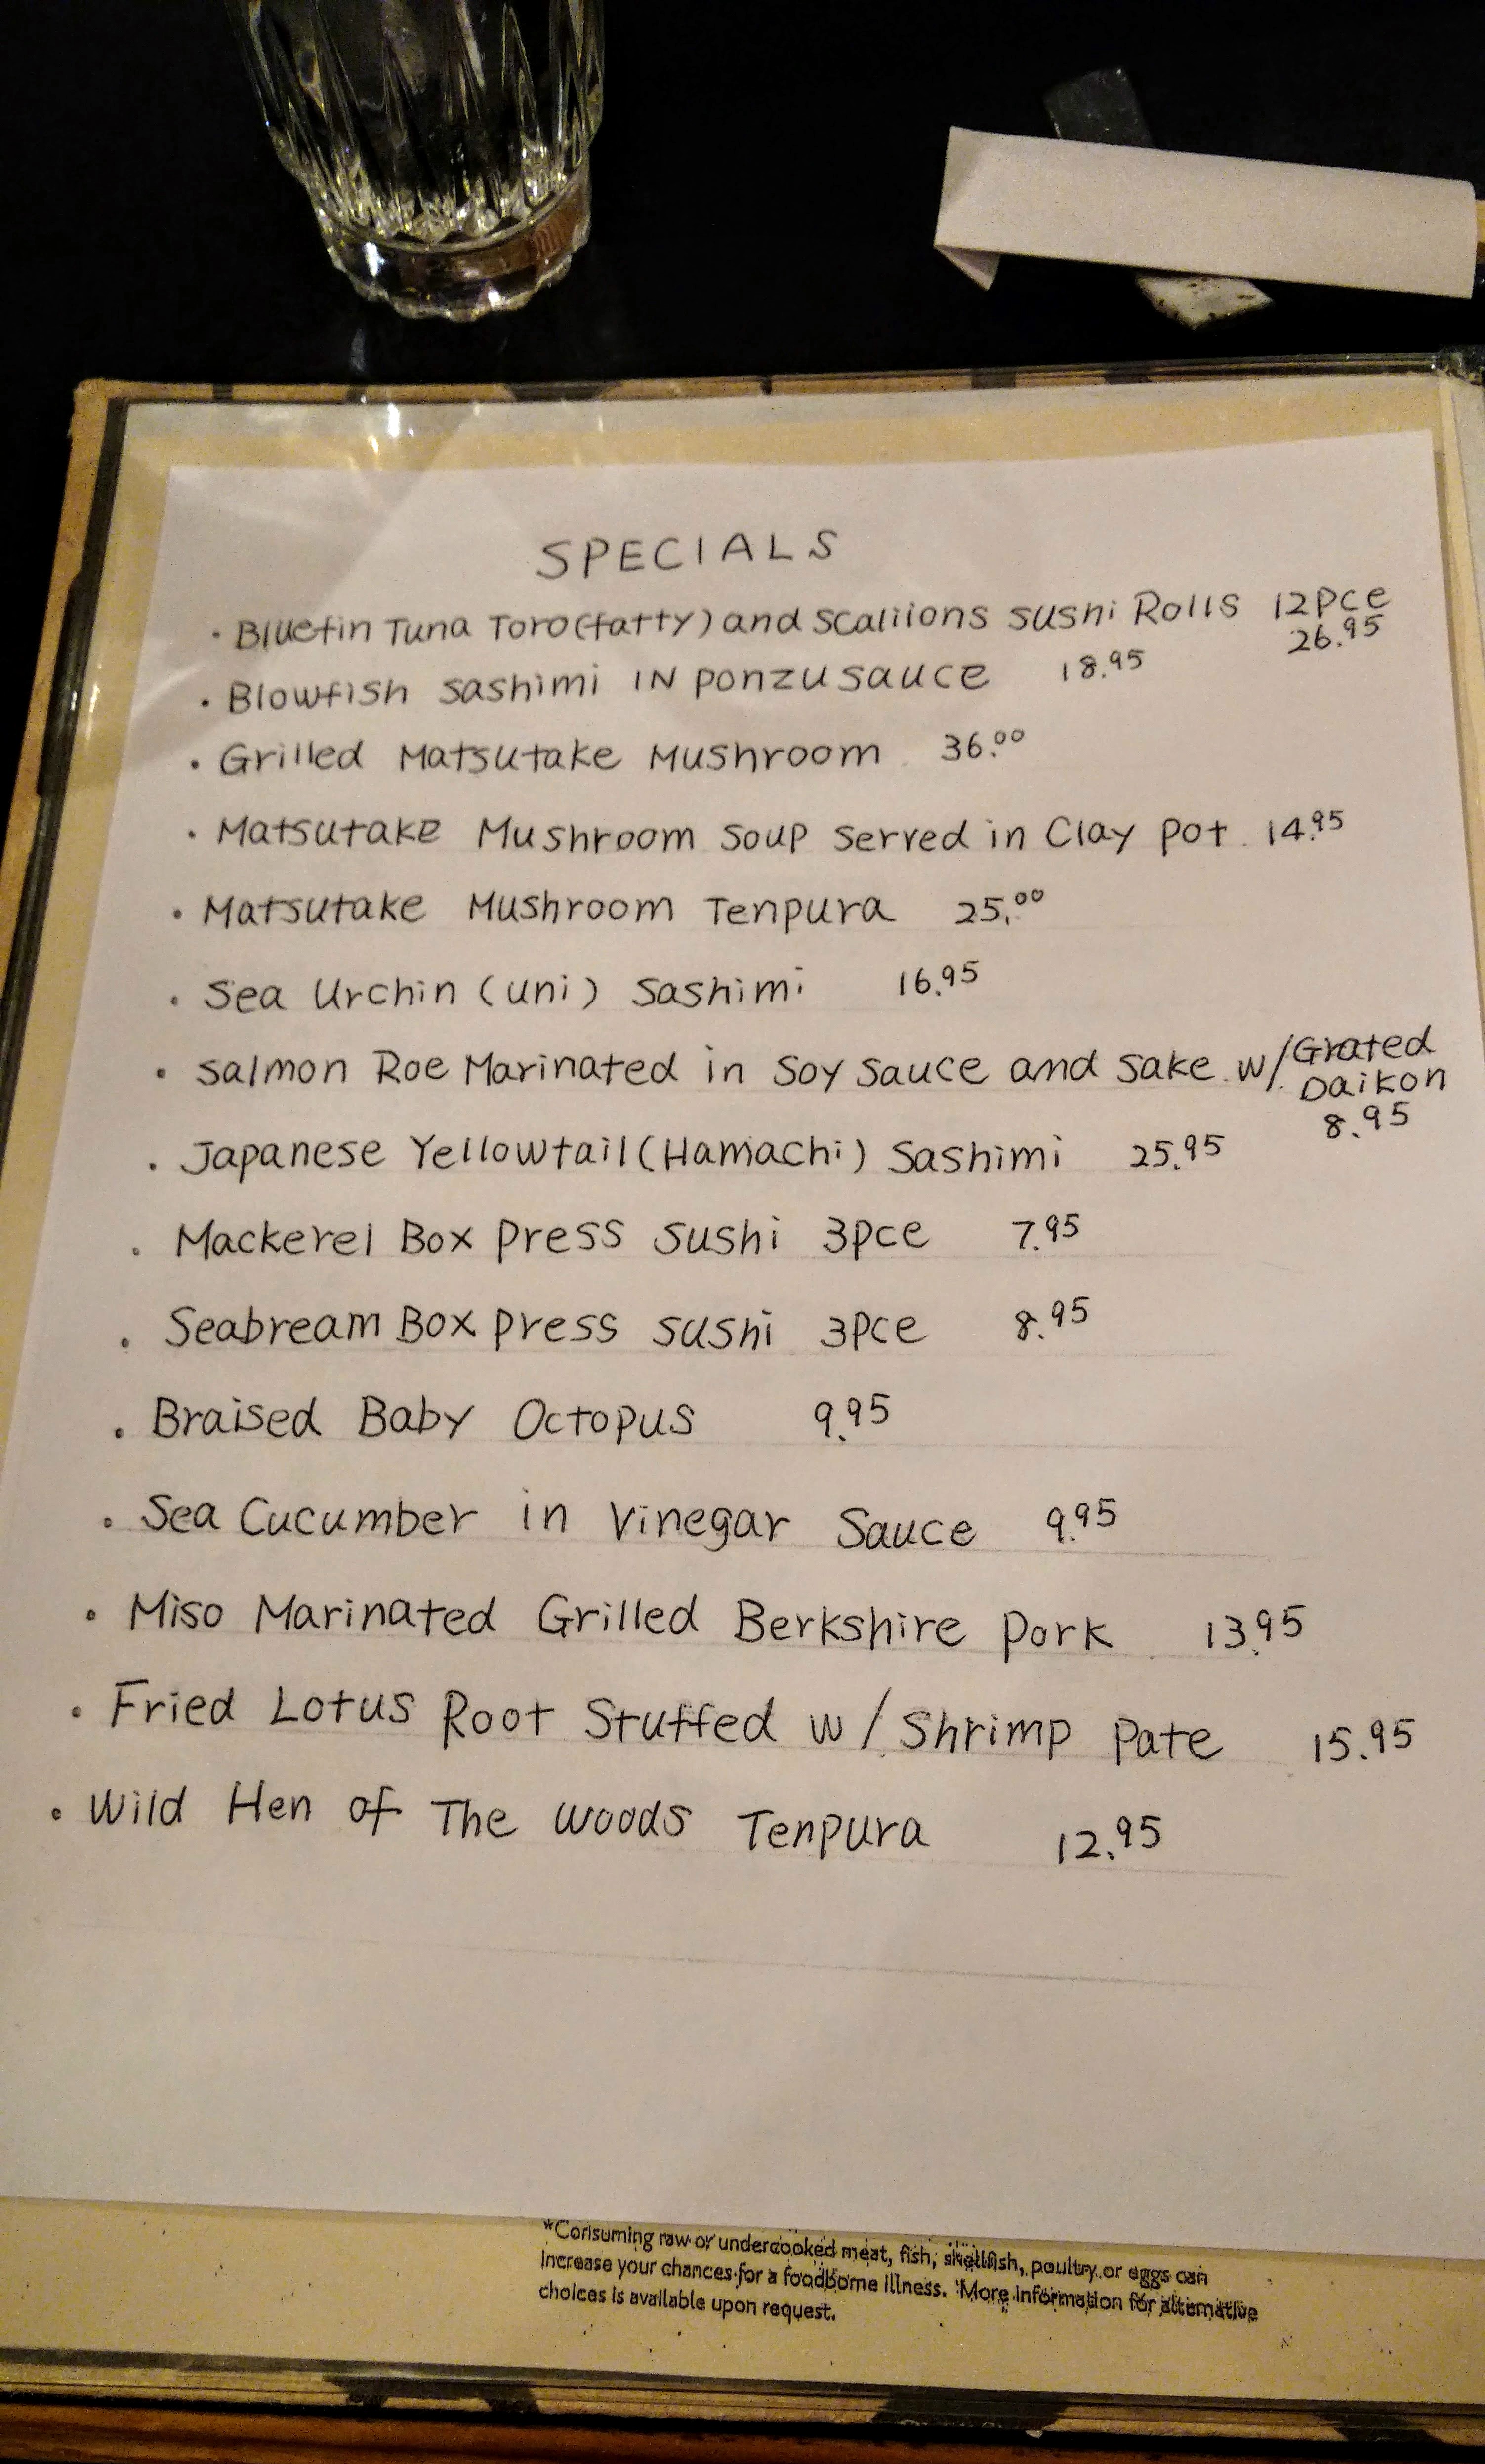 SPECIALS
· Bluefin Tuna Toro(fatty) and Scallions Sushi Rolls 12pce
26.95
· Blowfish Sashimi IN Ponzu Sauce 18.95
· Grilled Matsutake Mushroom 36.00
· Matsutake Mushroom Soup Served in Clay Pot 14.95
· Matsutake Mushroom Tenpura 25.00
· Sea Urchin (Uni) Sashimi 16.95
· Salmon Roe Marinated in Soy Sauce and Sake w/ Grated
Daikon
8.95
· Japanese Yellowtail (Hamachi) Sashimi 25.95
· Mackerel Box Press Sushi 3pce 7.95
· Seabream Box Press Sushi 3pce 8.95
· Braised Baby Octopus 9.95
· Sea Cucumber in Vinegar Sauce 9.95
· Miso Marinated Grilled Berkshire Pork 13.95
· Fried Lotus Root Stuffed w/ Shrimp Pate 15.95
· Wild Hen of The Woods Tenpura 12.95
*Consuming raw or undercooked meat, fish, shellfish, poultry or eggs can
increase your chances for a foodborne illness. More information for alternative
choices is available upon request.